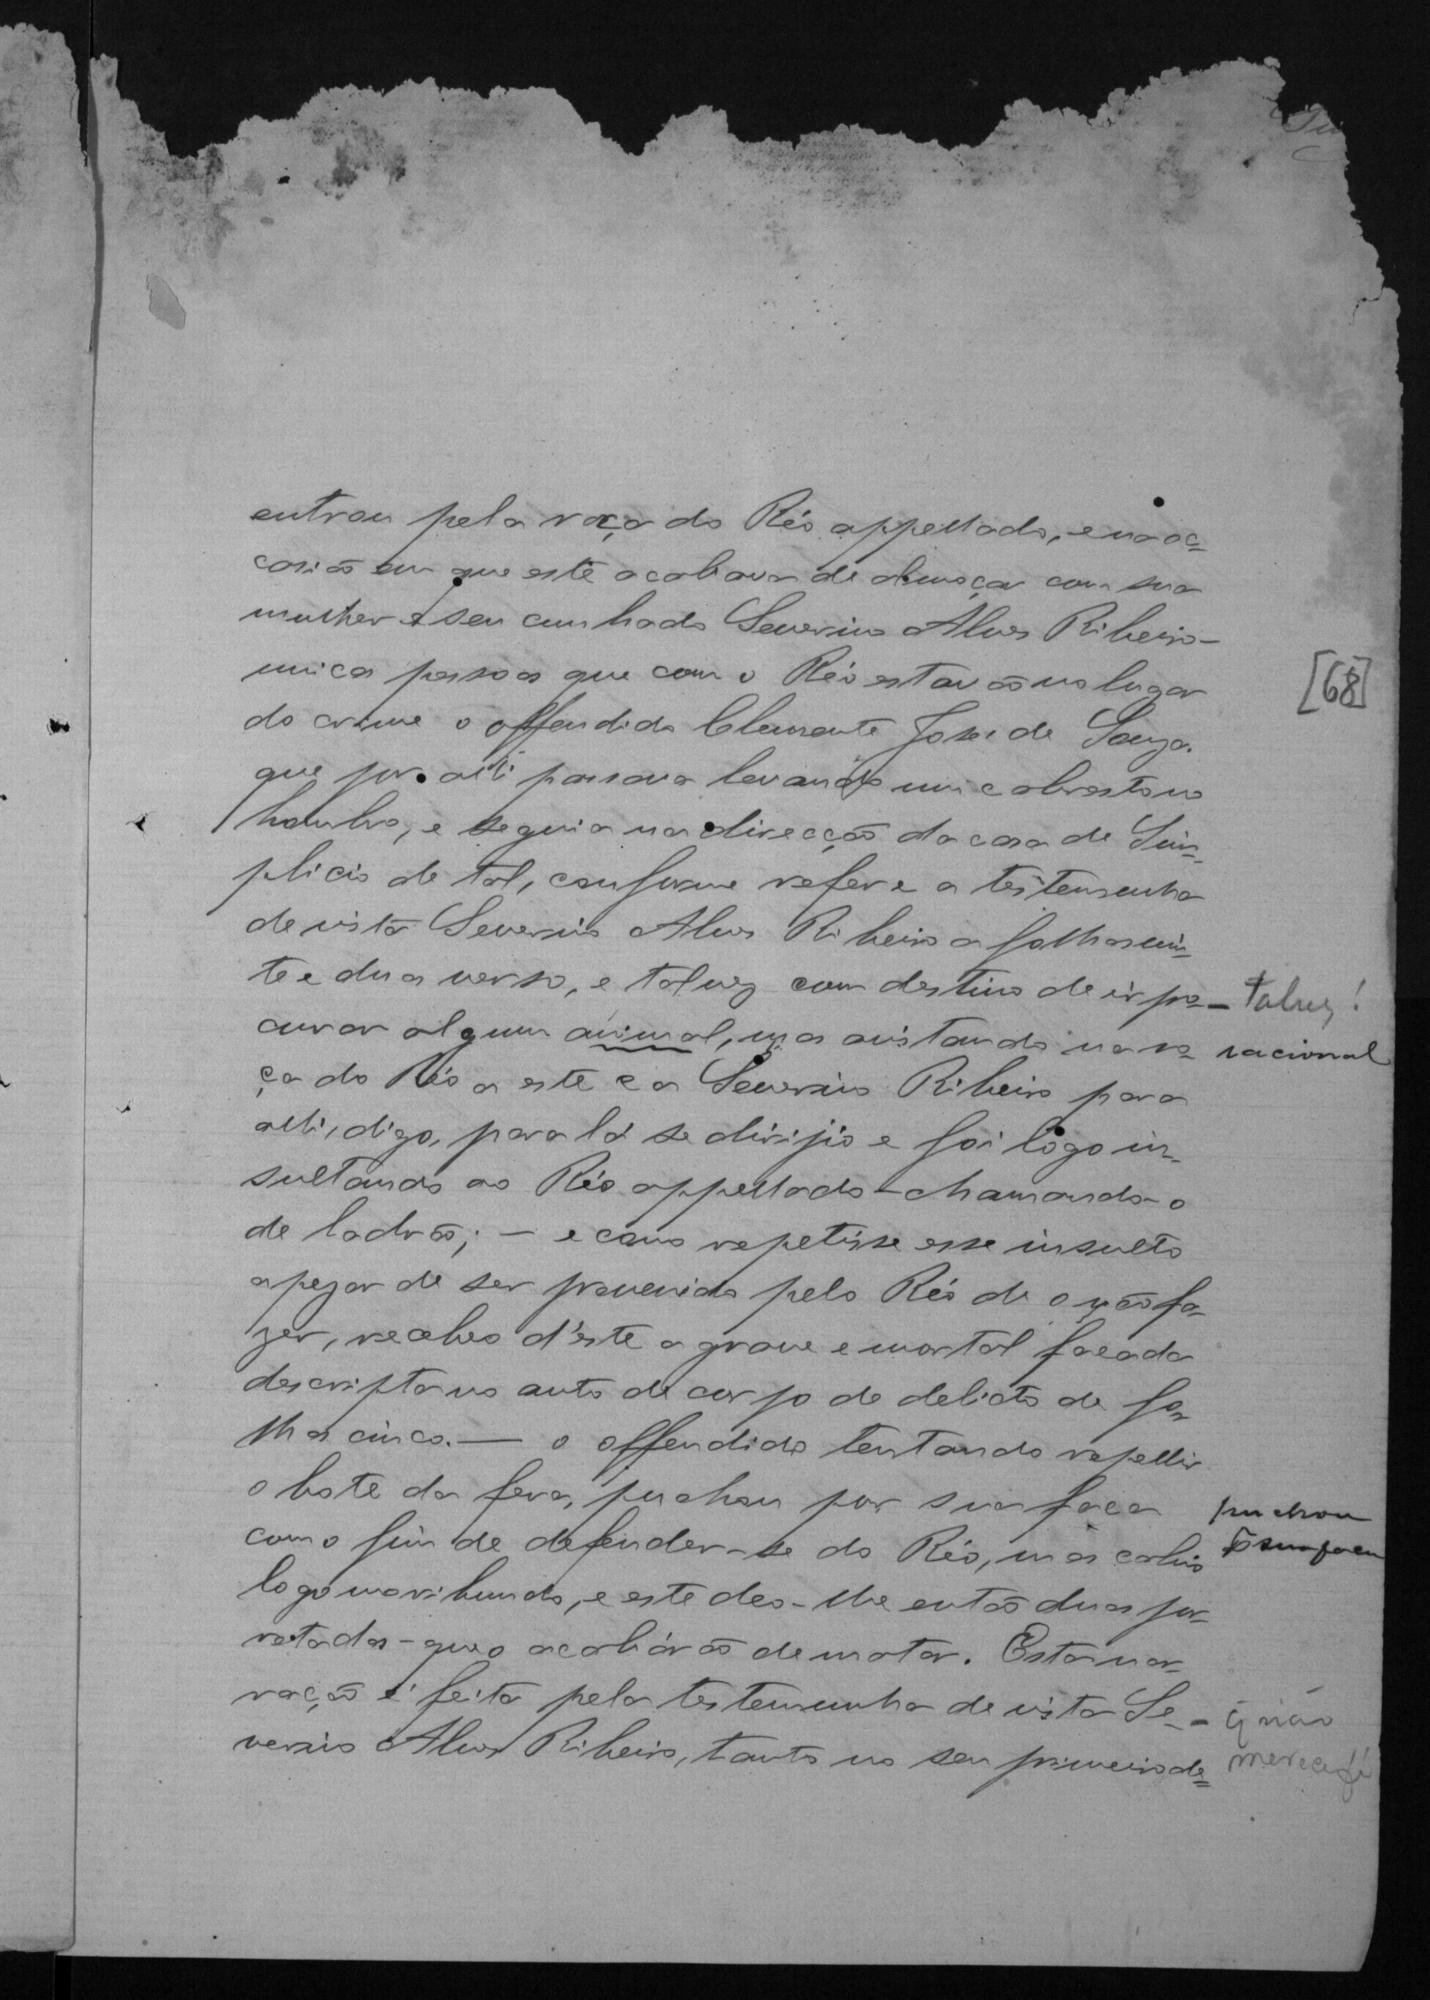 entrou pela roça do Réo appellado, e na oc=
casião em que este acabava de almoçar com sua
mulher e seu cunhado Severino Alves Ribeiro -
unicas pessoas que com o Réo estavão no lugar
do crime o offendido Clemente José de Souza.
que por alli passava levando um cabresto no
hombro, e seguia na direcção da casa de Sim-
plicio de tal, conforme refere a testemunha
de vista Severino Alves Ribeiro a folhas vin-
te e duas verso, e talvez com destino de ir pro- - talvez!
curar algum animal, mas avistando na ro- racional
ça do Réo a este e a Severino Ribeiro para
alli, digo, para lá se dirijio e foi logo in-
sultando ao Réo appellado - chamando-o
de ladrão; - e como repetisse esse insulto
apezar de ser prevenido pelo Réo de o não fa-
zer, recebeo d'este a grave e mortal facada
descripta no auto de corpo de delicto de fo-
lhas cinco. — o offendido tentando repellir
o bote da fera, puchou por sua faca puchou
com o fim de defender-se do Réo, mas cahio sua faca
logo moribundo, e este deo-lhe então duas por-
retadas - que o acabárão de matar. Esta nar-
ração é feita pela testemunha de vista Se- - q não
verino Alves Ribeiro, tanto no seu primeiro de= merece fé
[68]